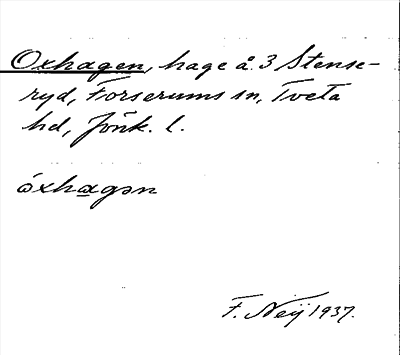 Oxhagen, hage å 3 Stense-
ryd, Forserums sn, Tveta
hd, Jönk. l.
óxhagən
F. Neij 1937.